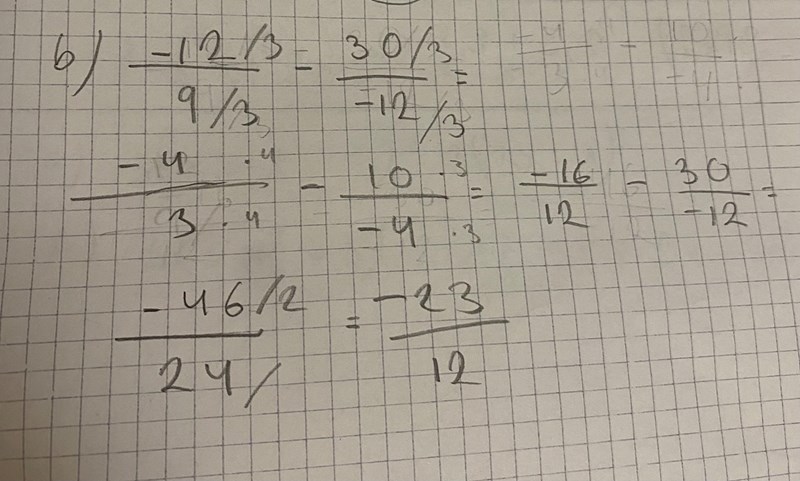 b) -12/3 / 9/3 - 30/3 / -12/3 =
-4 · 4 / 3 · 4 - 10 · 3 / -4 · 3 = -16 / 12 - 30 / -12 =
-46/2 / 24/ = -23 / 12